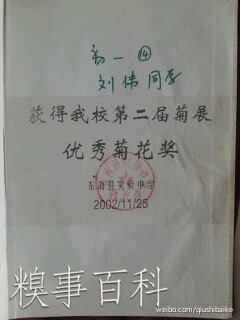 初一⑭
刘伟同学
获得我校第二届菊展
优秀菊花奖
东海县实验中学
2002/11/25
糗事百科
weibo.com/qiushibaike